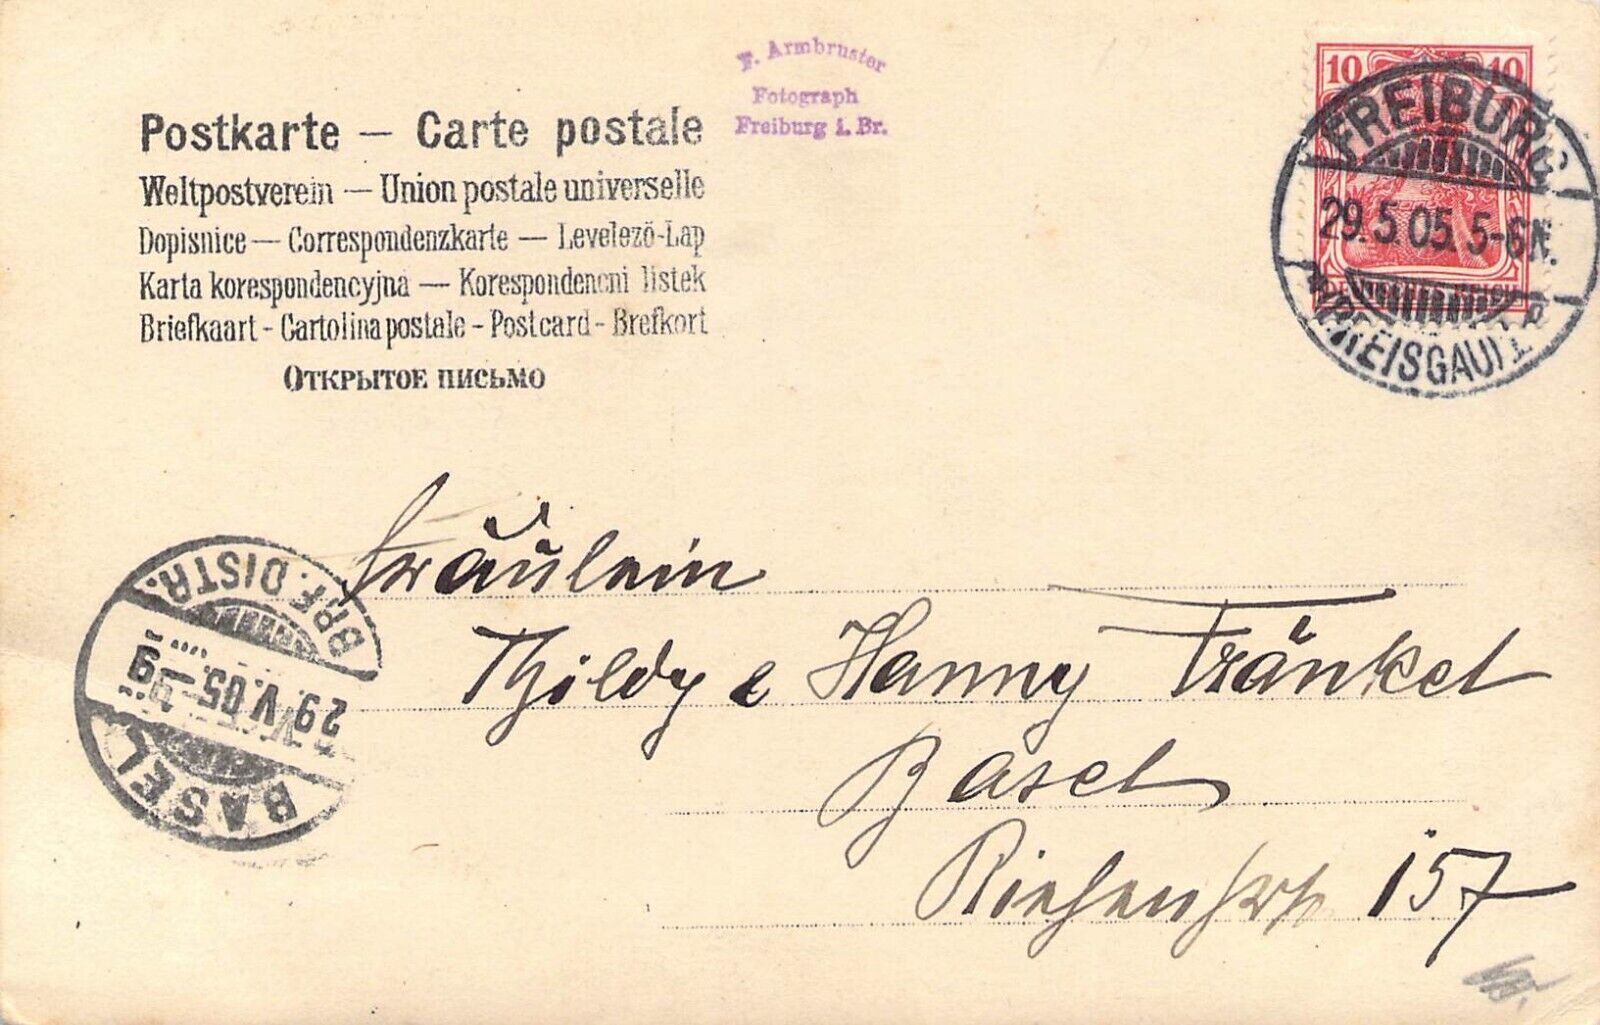 F. Armbruster
Fotograph
Freiburg i. Br.
Postkarte — Carte postale
Weltpostverein — Union postale universelle
Dopisnice — Correspondenzkarte — Levelező-Lap
Karta korespondencyjna — Korespondencni listek
Briefkaart - Cartolina postale - Postcard - Brefkort
Открытое письмо
10 10
DEUTSCHES REICH
FREIBURG
29.5.05.5-6N.
(BREISGAU) 1
BRF. DISTR.
29.V.05.-9
BASEL
Fräulein
Thildy & Hanny Fränkel
Basel
Riehenstr 157